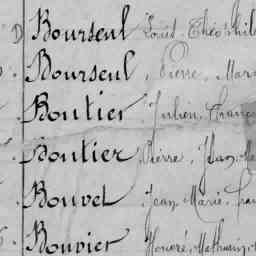 D Bourseul Louis Théophil
Bourseul, Pierre, Mar
Boutier Julien, Franç
Boutier Pierre, Jean, Ma
Bouvet Jean Marie, Fra
Bouvier Honoré, Mathurin